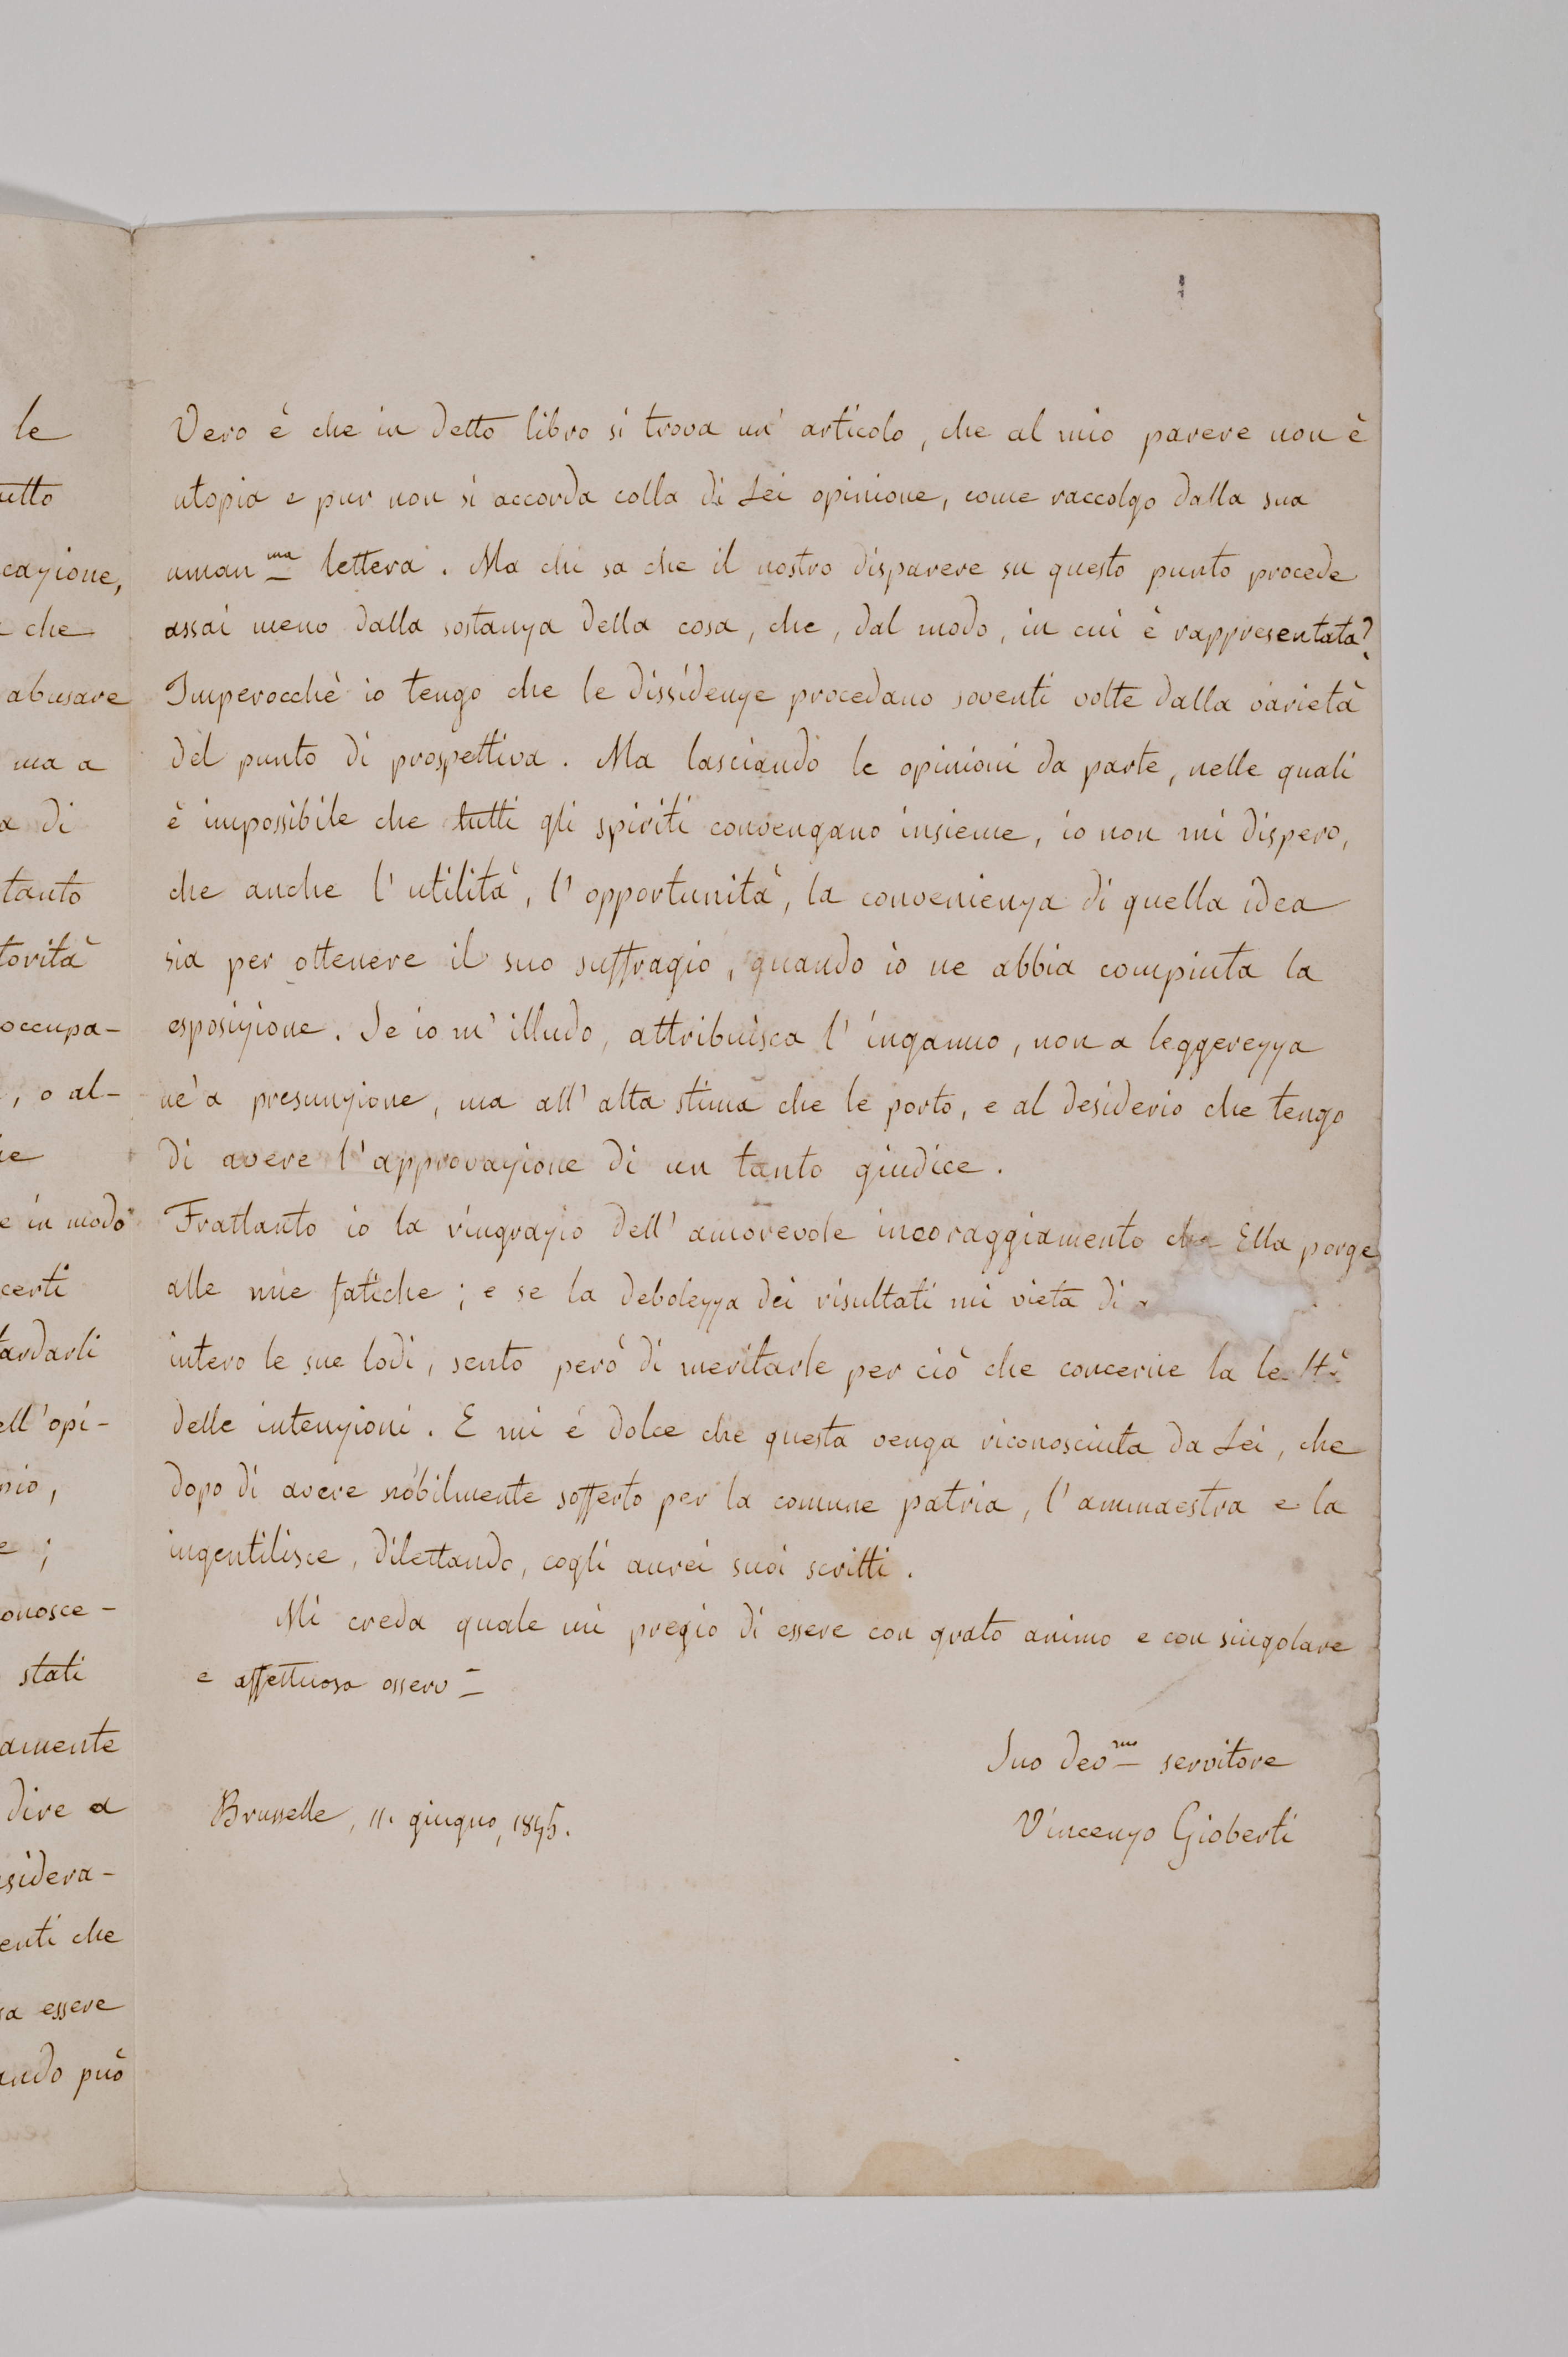 le
utto
cazione,
che
abusare
ma a
a di
tanto
torità
occupa-
, o al-
e in modo
certi
tardarli
ell'opi-
nio,
e ;
onosce-
stati
amente
dire a
sidera-
enti che
sa essere
ando può
Vero è che in detto libro si trova un' articolo, che al mio parere non è
utopia e pur non si accorda colla di Lei opinione, come raccolgo dalla sua
uman.ma lettera. Ma chi sa che il nostro disparere su questo punto procede
assai meno dalla sostanza della cosa, che, dal modo, in cui è rappresentata?
Imperocchè io tengo che le dissidenze procedano soventi volte dalla varietà
del punto di prospettiva. Ma lasciando le opinioni da parte, nelle quali
è impossibile che tutti gli spiriti convengano insieme, io non mi dispero,
che anche l'utilità, l'opportunità, la convenienza di quella idea
sia per ottenere il suo suffragio, quando io ne abbia compiuta la
esposizione. Se io m'illudo, attribuisca l'inganno, non a leggerezza
nè a presunzione, ma all'alta stima che le porto, e al desiderio che tengo
di avere l'approvazione di un tanto giudice.
Frattanto io la ringrazio dell'amorevole incoraggiamento che Ella porge
alle mie fatiche; e se la debolezza dei risultati mi vieta di
intero le sue lodi, sento però di meritarle per ciò che concerne la lealtà
delle intenzioni. E mi è dolce che questa venga riconosciuta da Lei, che
dopo di avere nobilmente sofferto per la comune patria, l'ammaestra e la
ingentilisce, dilettando, cogli aurei suoi scritti.
Mi creda quale mi pregio di essere con grato animo e con singolare
e affettuosa osserv.
Suo dev.mo servitore
Brusselle, 11. giugno, 1845.
Vincenzo Gioberti